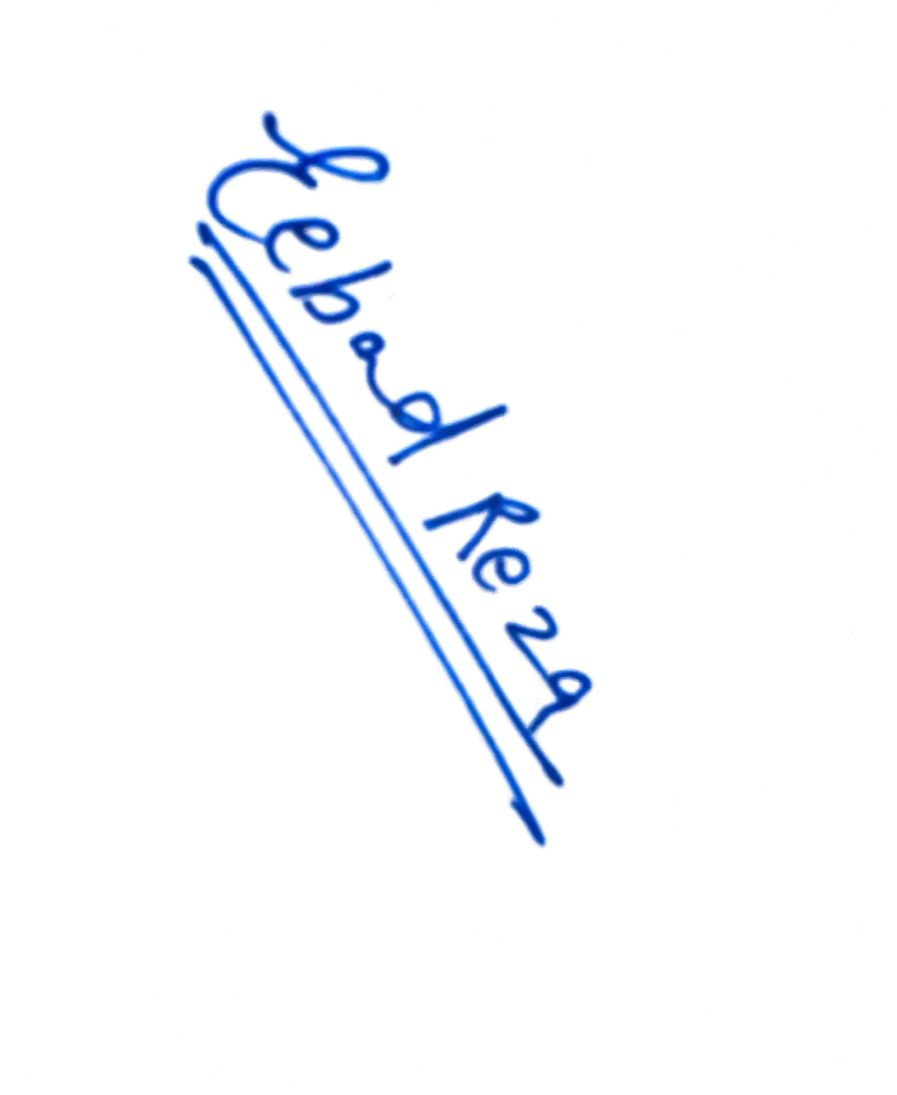 Eebad Reza